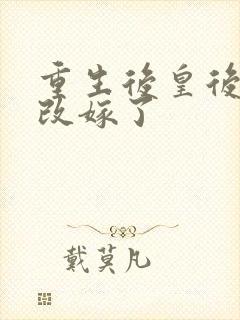 重生後皇後
改嫁了
戴莫凡